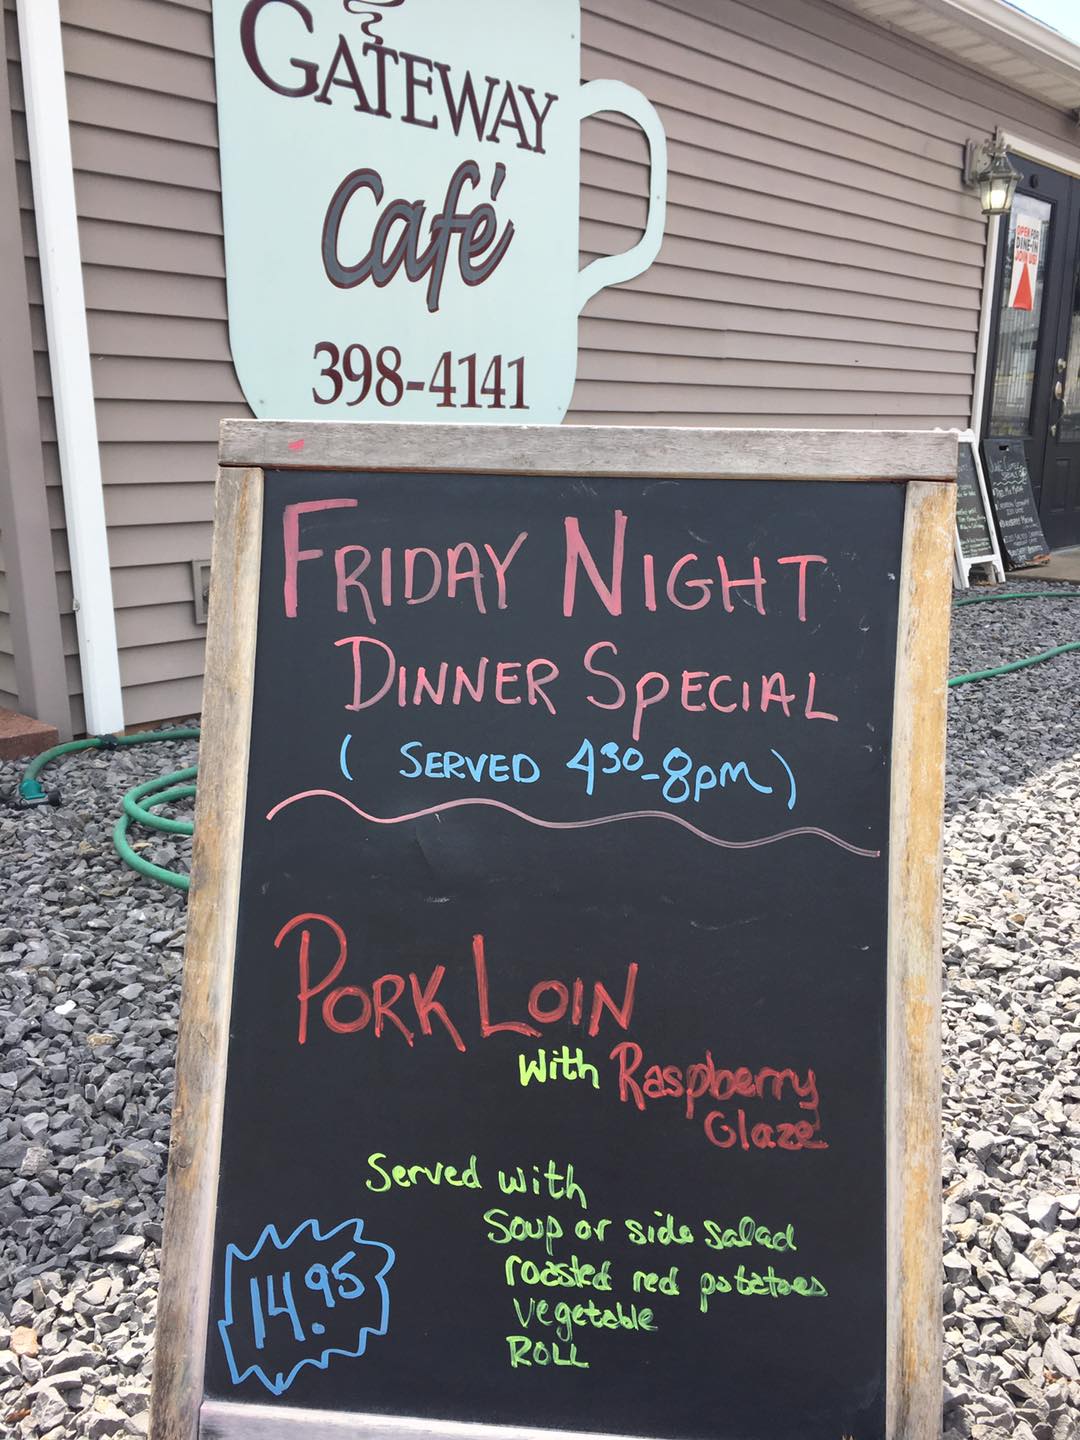 GATEWAY
Café
398-4141
OPEN FOR
DINE-IN
JOIN US!
FRIDAY NIGHT
DINNER SPECIAL
( SERVED 4³⁰-8pm )
PORK LOIN
with Raspberry
Glaze
Served with
Soup or side salad
roasted red potatoes
vegetable
ROLL
14.95